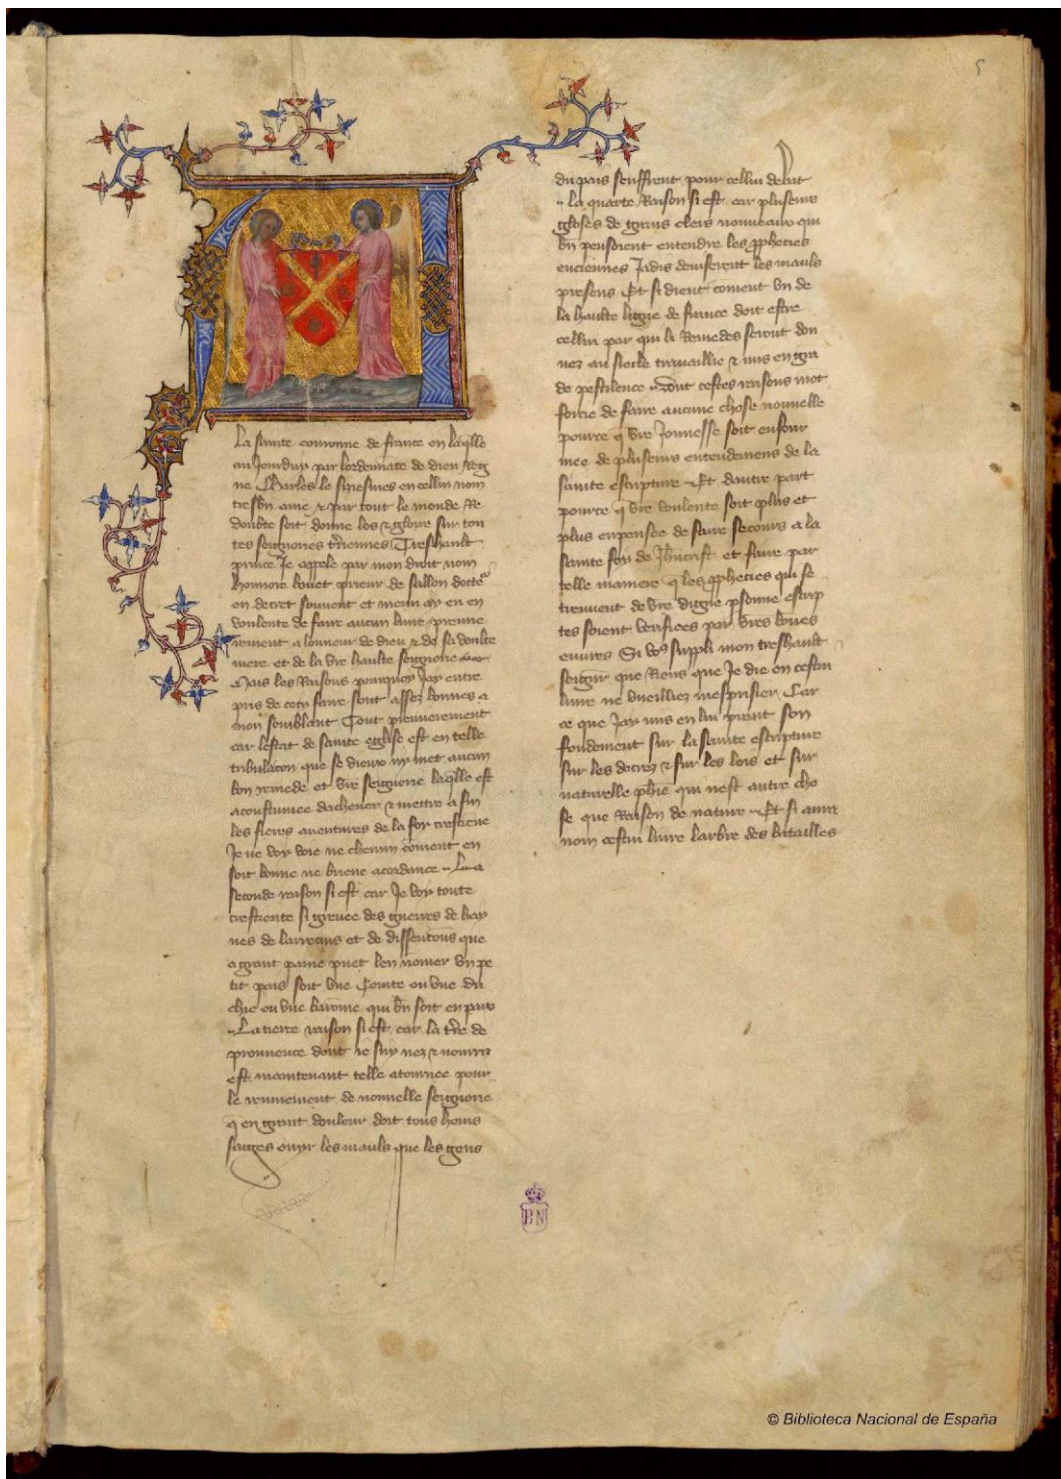 5
La sainte couronne de france en laqlle
au Jourduy par lordennace de dieu Reg
ne Charles le siziesmes en cellui nom
tresbn ame & par tout le monde Re
doubte soit donne los & gloire sur tou
tes seignories triennes Treshault
prince Je appele par mon droit nom
honnore bonet prieur de sallon docte
en decret souuent et menu ay eu en
voulente de faire aucun liure premie
rement a lonneur de dieu & de sa doulce
mere et de la vre haulte seignorie
Mais les Raisons pourquoy Jay entre
pris de cecy faire sont assez bonnes a
mon semblant Tout premierement
car lestat de sainte eglise est en telle
tribulacon que se dieux ny met aucun
bon remede et vre seignorie laqlle est
acoustumee dacheuer & mettre a fin
les fieres auentures de la foy crestiene
Je ne voy voie ne chemin coment en
soit bonne ne brieue acordance La
seconde raison si est car Je voy toute
crestiente si greuee des guerres de hay
nes de larrecins et de dissencons que
a grant paine puet len nomer vn pe
tit pais soit vne Conte ou vne du
chie ou vne baronie qui bn soit en paix
La tierce raison si est car la tre de
prouuence dont ie suy nez & nourriz
est maintenant telle atournee pour
le renuement de nouuelle seignorie
q en grant douleur doit tous homs
saiges ouyr les mauls que les gens
du pais seuffrent pour cellui debat
La quarte Raison si est car plusieurs
gloses de grans clers nouueaux qui
bn pensoient entendre les pphecies
enciennes Jadis deuiserent les mauls
presens Et si dient coment vn de
la haulte ligne de france doit estre
cellui par qui li Remedes seront don
nez au siecle trauaillie & mis en gra
de pestilence dont cestes raisons mot
forcie de faire aucune chose nouuelle
pource q vre Jonnesse soit enfour
mee de plusieurs entendemens de la
sainte escripture Et dautre part
pource q vre voulente soit plus et
plus enpensee de faire secours a la
sainte foy de Jhucrist et faire par
telle maniere q les pphecies qui se
treuuent de vre digne psonne escrip
tes soient verifiees par vres bones
euures Si vos suppli mon treshault
seignr que Riens que Je die en cestui
liure ne vueilliez mesprisier Car
ce que Jay mis en lui prent son
fondement sur la sainte escripture
sur les decrez & sur les lois et sur
naturelle phie qui nest autre cho
se que Raison de nature Et si aura
nom cestui liure larbre des batailles
BN
© Biblioteca Nacional de España